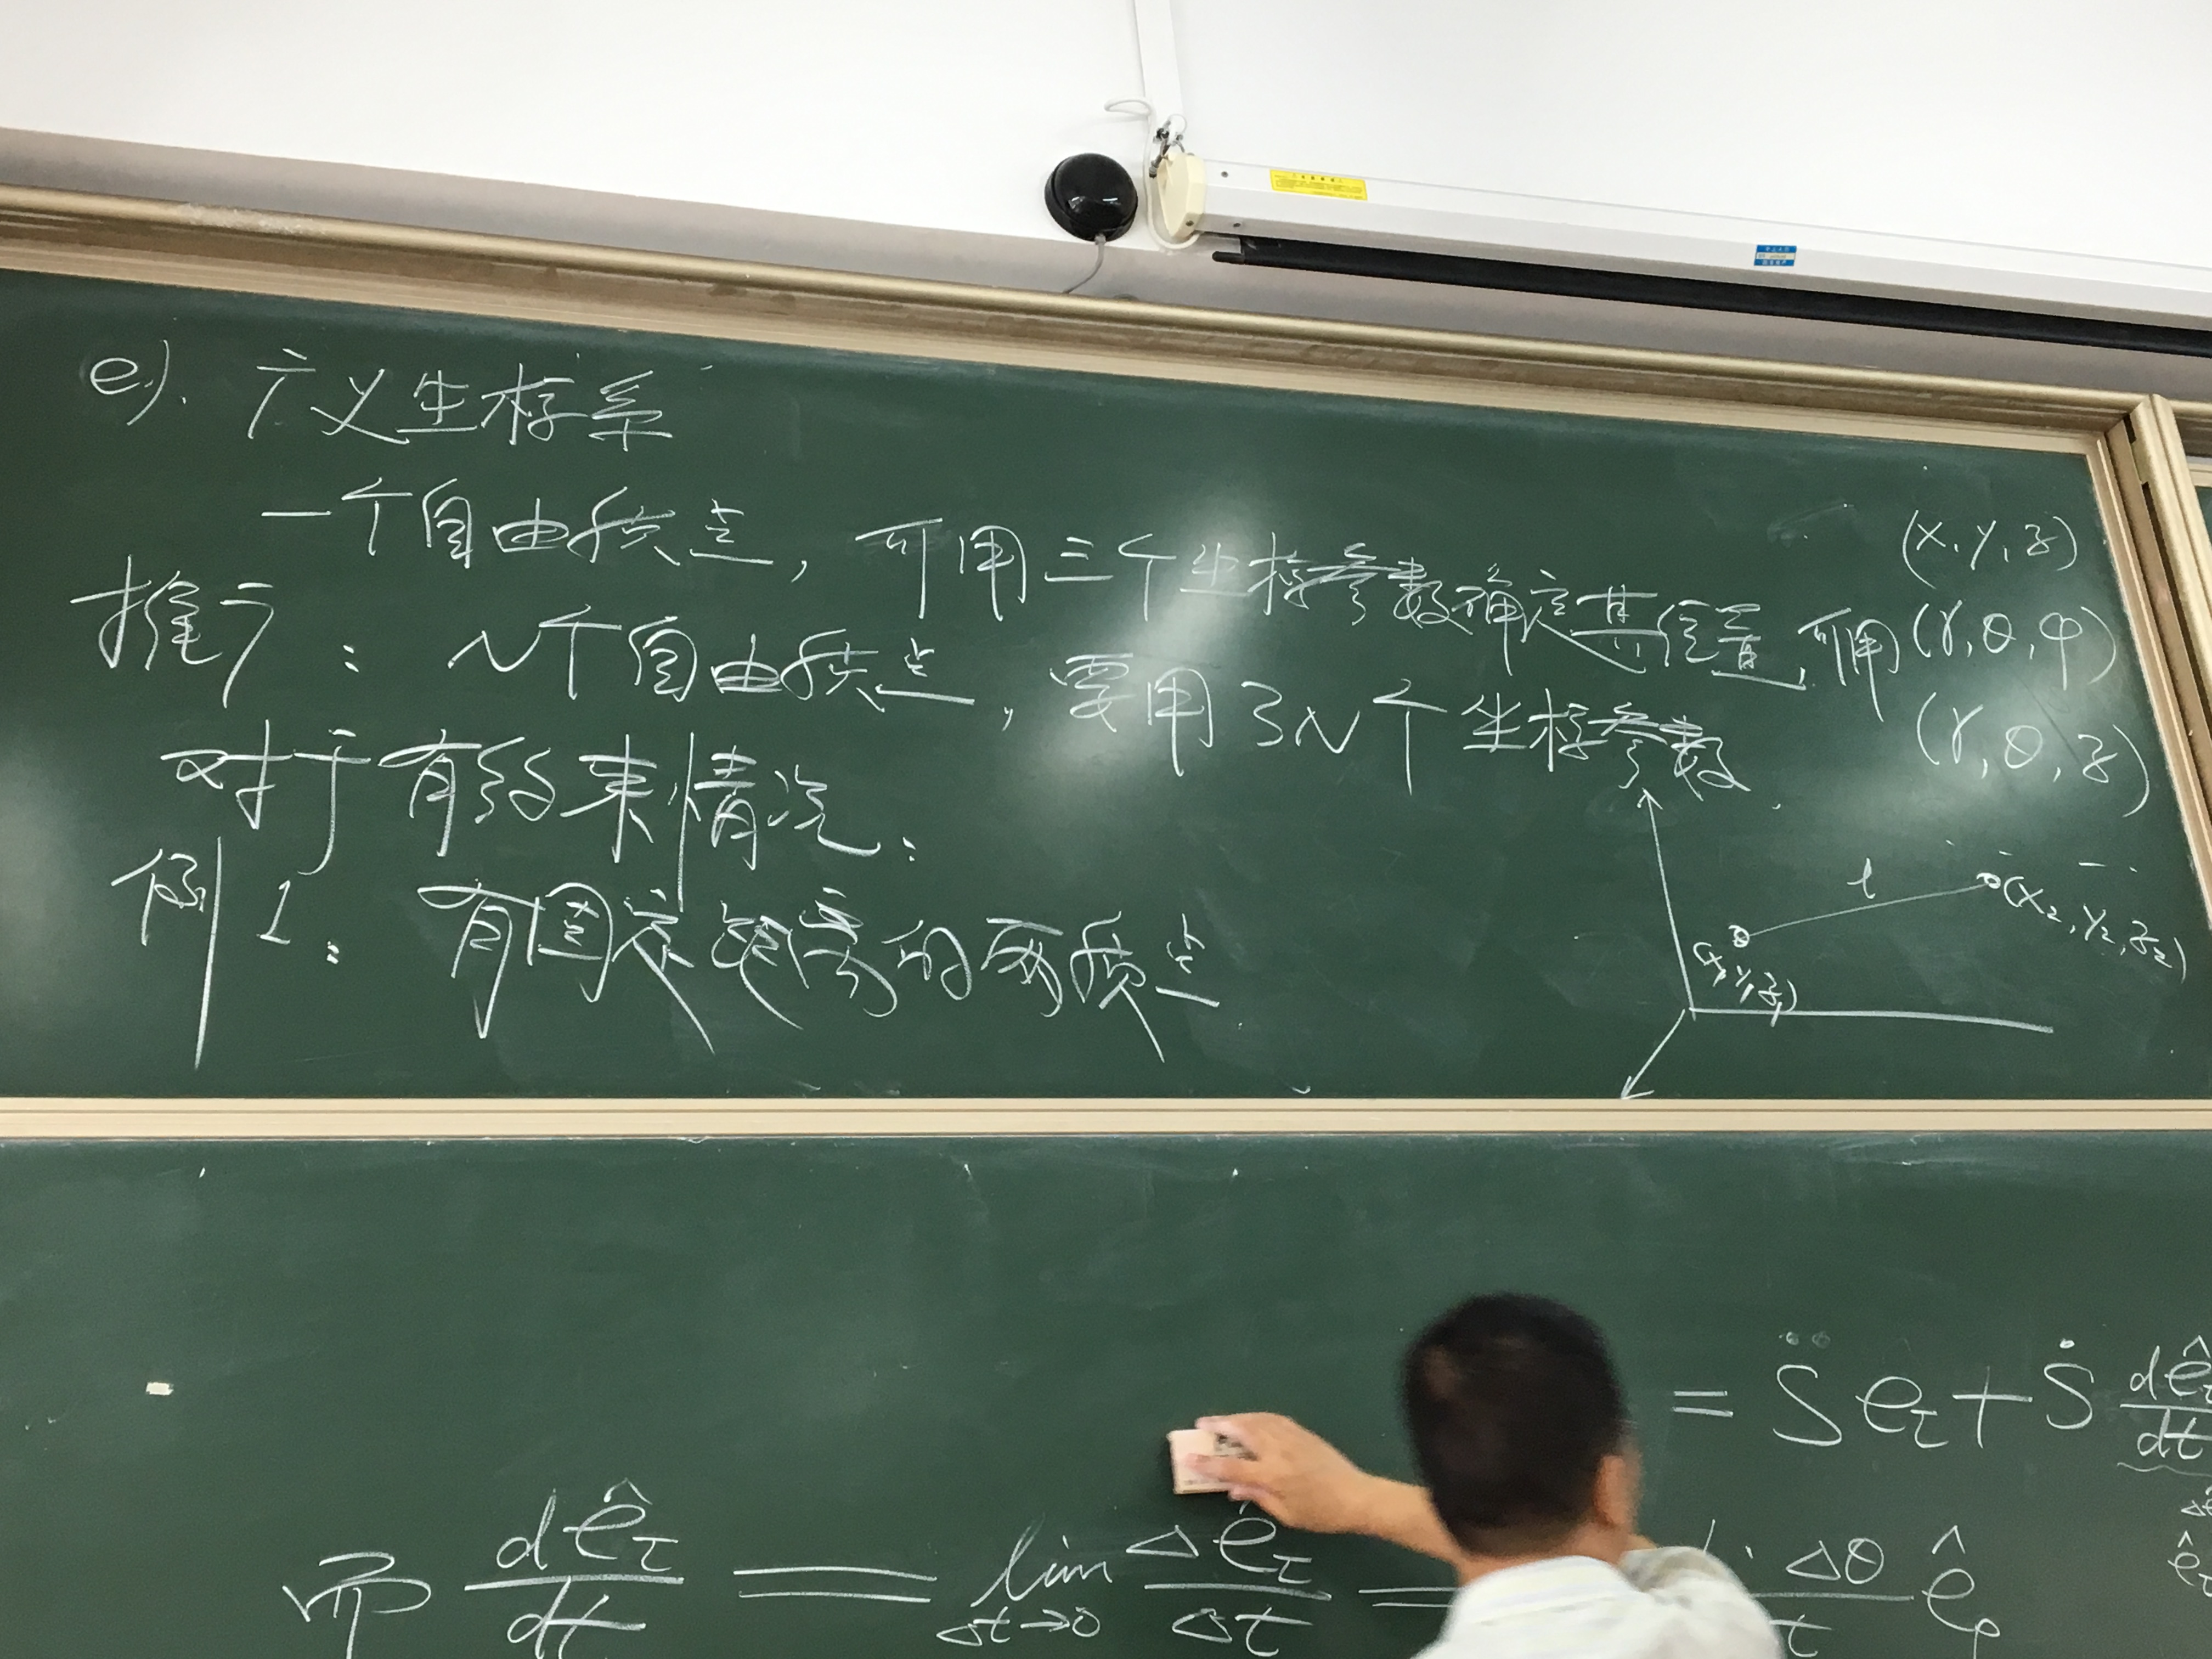 e). 广义坐标系
一个自由质点, 可用三个坐标参数确定其位置, 可用 (x, y, z)
(r, θ, φ)
(r, θ, z)
推广: N个自由质点, 要用3N个坐标参数.
对于有约束情况:
例1: 有固定距离的两质点
l
(x₂, y₂, z₂)
(x₁, y₁, z₁)
= s̈ e_τ + ṡ dê_τ/dt
而 dê_τ/dt = lim_{Δt→0} Δê_τ/Δt =
Δθ
t
ê_ρ